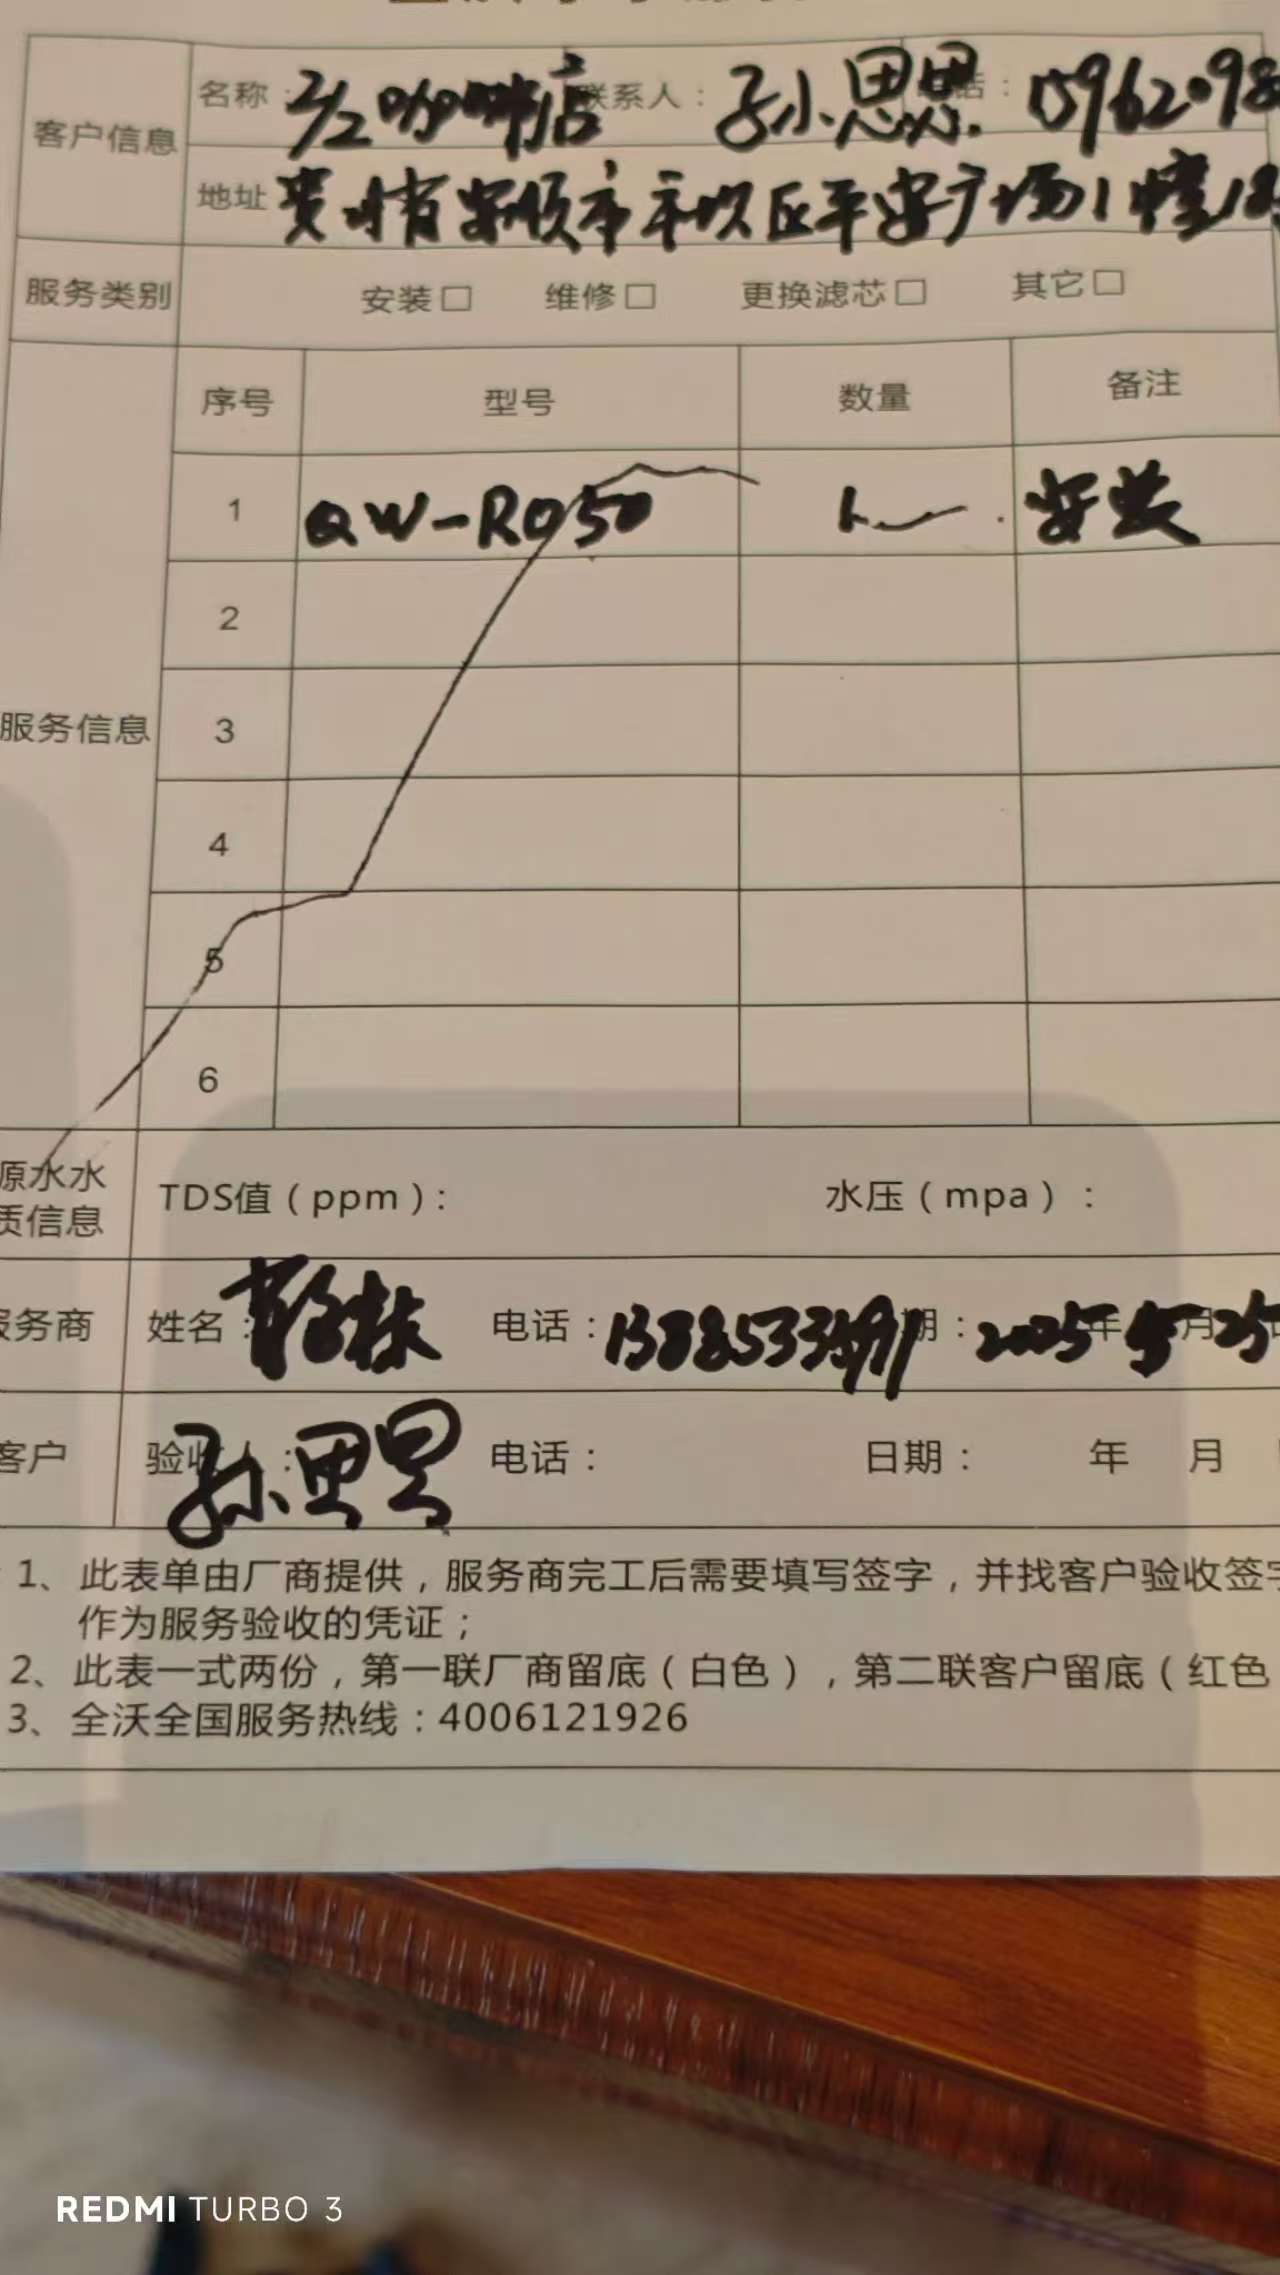 客户信息 名称：2/2咖啡店 联系人：孙小思思 电话：15962098
地址 贵州省安顺市平坝区平安广场1幢12
服务类别 安装□ 维修□ 更换滤芯□ 其它□
序号 型号 数量 备注
1 QW-RO50 1 安装
2
服务信息 3
4
5
6
源水水质信息 TDS值（ppm）： 水压（mpa）：
服务商 姓名： 电话： 期：2025年 月25
客户 验收人：孙思思 电话： 日期： 年 月
1、此表单由厂商提供，服务商完工后需要填写签字，并找客户验收签字
作为服务验收的凭证；
2、此表一式两份，第一联厂商留底（白色），第二联客户留底（红色
3、全沃全国服务热线：4006121926
REDMI TURBO 3